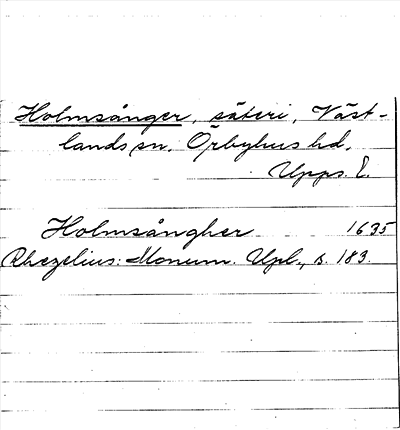 Holmsånger, säteri, Väst-
lands sn. Örbyhus hd.
Upps. l.
Holmsångher 1635
Rhezelius: Monum. Upl., s. 183.